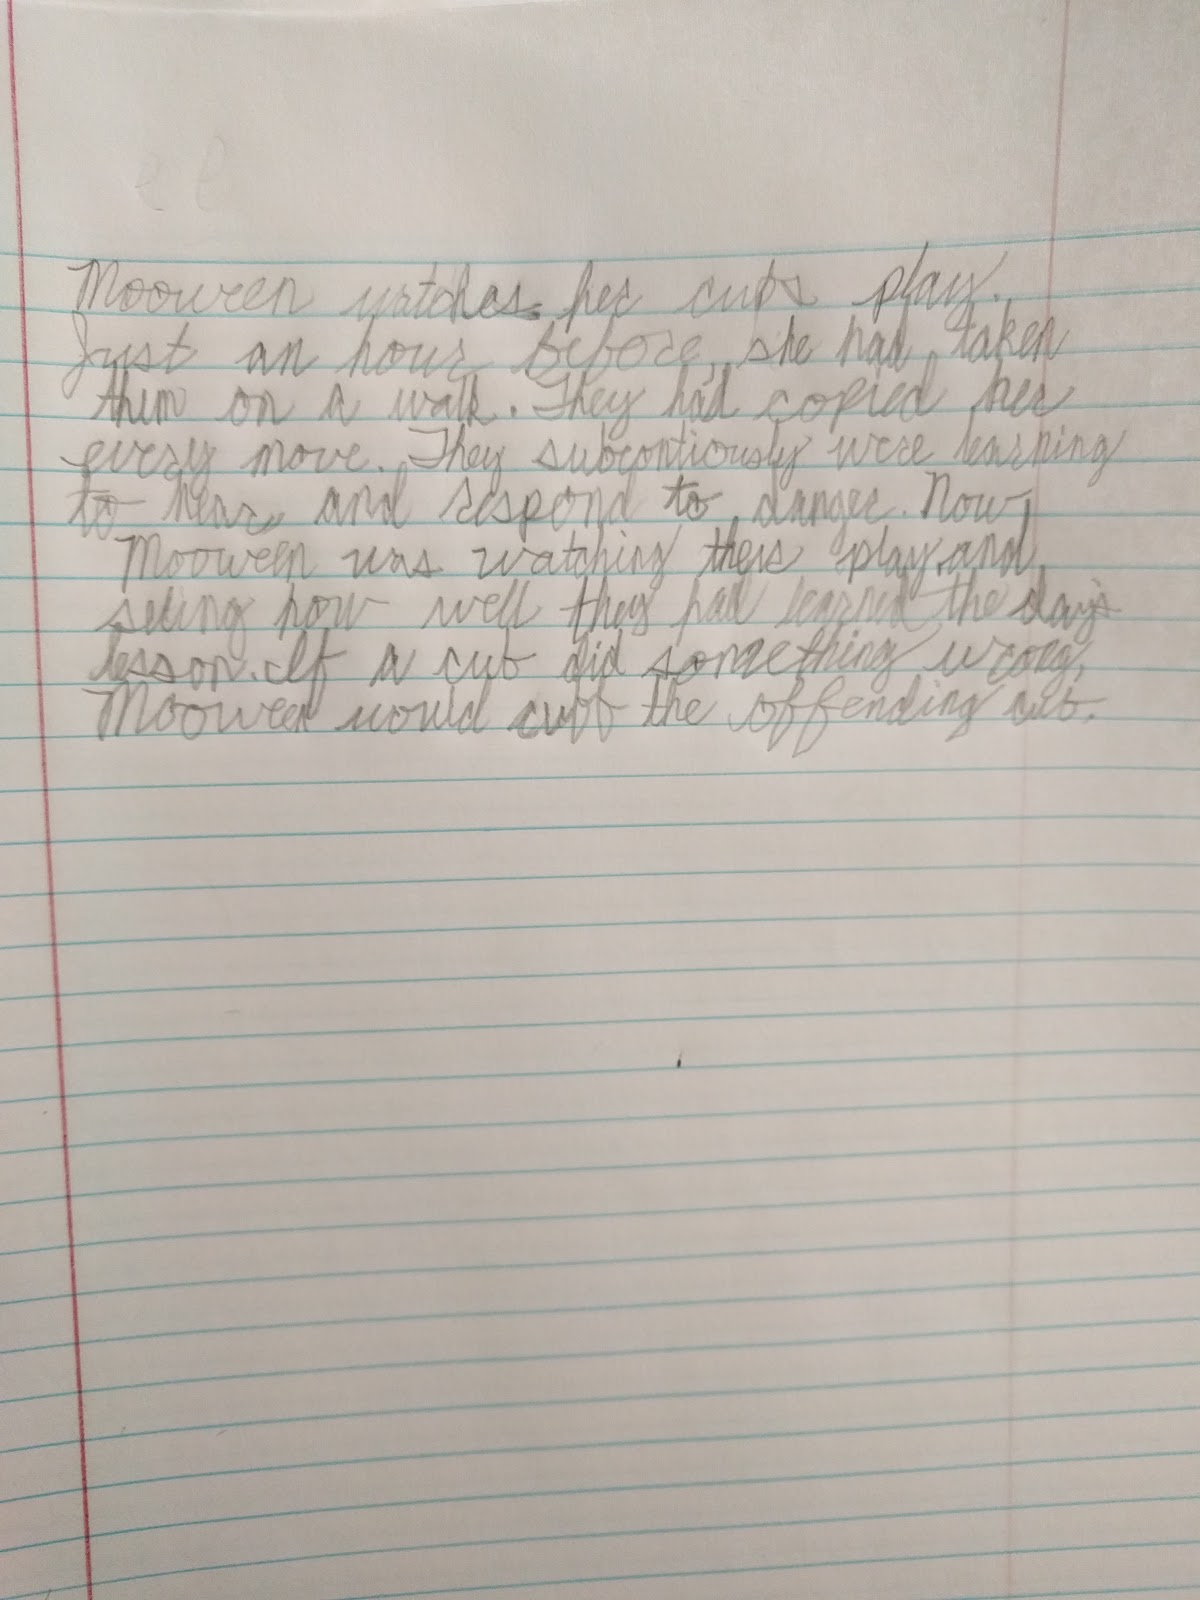 Mooween watches her cubs play.
Just an hour before, she had taken
them on a walk. They had copied her
every move. They subcontiously were learning
to hear and respond to danger. Now,
Mooween was watching their play and
seeing how well they had learned the day's
lesson. If a cub did something wrong,
Mooween would cuff the offending cub.